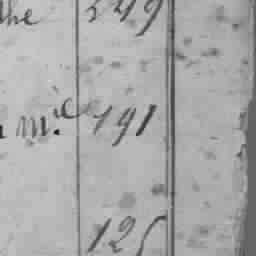 the 249
m.ie 191
125